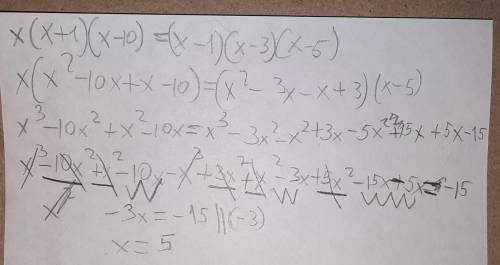 x(x+1)(x-10)=(x-1)(x-3)(x-5)
x(x²-10x+x-10)=(x²-3x-x+3)(x-5)
x³-10x²+x²-10x=x³-3x²-x²+3x-5x²+15x+5x-15
x³-10x²+x²-10x-x³+3x²+x²-3x+5x²-15x-5x=-15
x
-3x=-15 ||(-3)
x=5